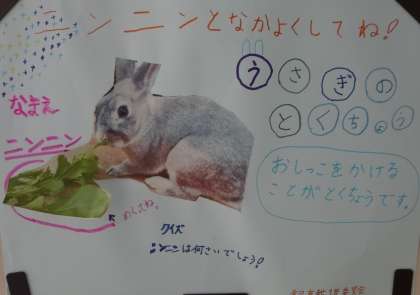 ニンニンとなかよくしてね!
うさぎの
とくちょう
なまえ
ニンニン
おしっこをかける
ことがとくちょうです。
クイズ
ニンニンは何さいでしょう!